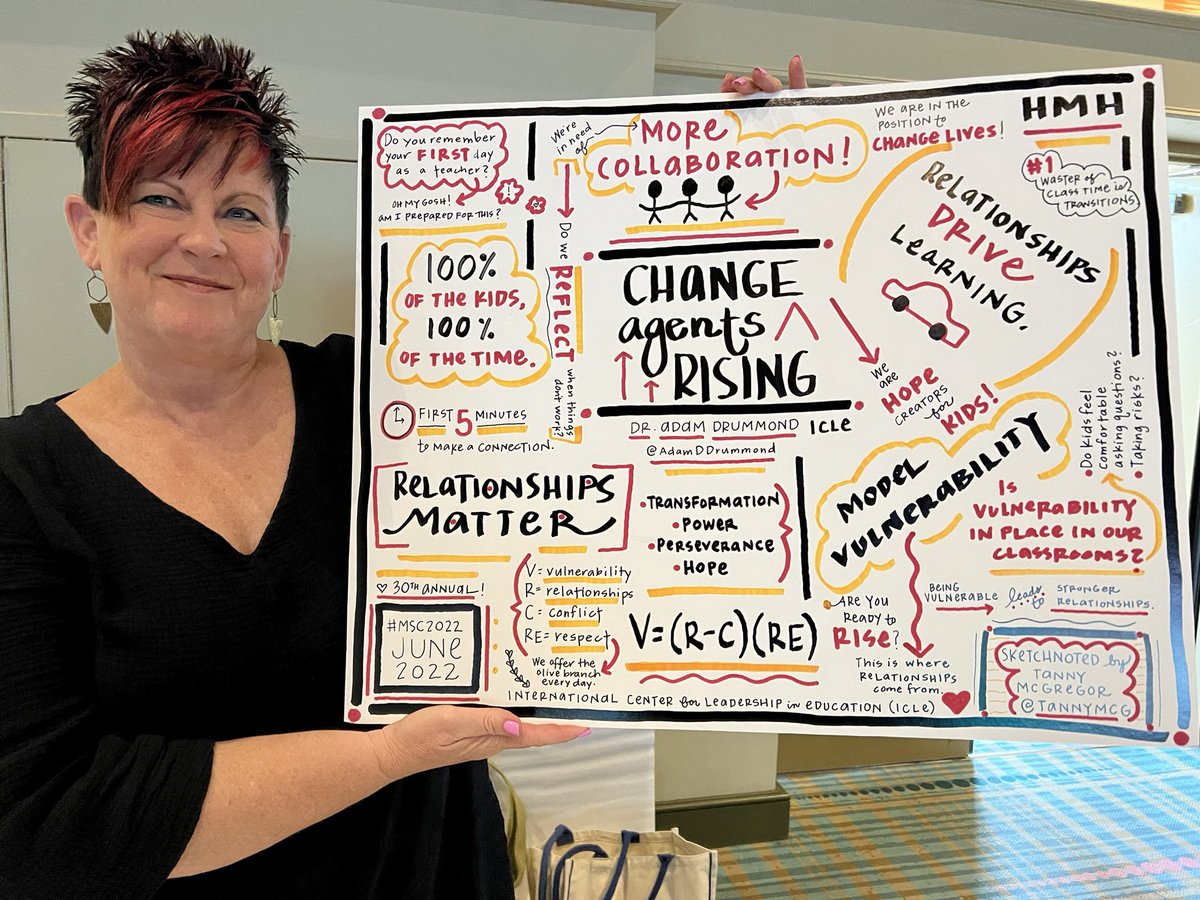 Do you remember
your FIRST day
as a teacher?
OH MY GOSH!
AM I PREPARED FOR THIS?
!
We're
in need
of
MORE
COLLABORATION!
WE ARE IN THE
POSITION to
CHANGE LIVES!
HMH
#1
WASTER OF
CLASS TIME is
TRANSITIONS.
RELATIONSHIPS
DRIVE
LEARNING.
100%
OF THE KIDS,
100%
OF THE TIME.
Do we
REFLECT
when things
dont work?
CHANGE
agents
RISING
DR. ADAM DRUMMOND ICLE
@AdamDDrummond
We
are
HOPE
CREATORS
for
KIDS!
FIRST 5 MINUTES
to MAKE A CONNECTION.
RELATIONSHIPS
MATTER
•TRANSFORMATION
•POWER
•PERSEVERANCE
•HOPE
MODEL
VULNERABILITY
•Do kids feel
comfortable
asking questions?
•Taking risks?
Is
VULNERABILITY
IN PLACE IN OUR
CLASSROOMS?
BEING
VULNERABLE
leads
to
STRONGER
RELATIONSHIPS.
♡ 30TH ANNUAL!
#MSC2022
JUNE
2022
V= vulnerability
R= relationships
C= conflict
RE= respect
We offer the
olive branch
every day.
V=(R-C)(RE)
ARE YOU
READY
to
RISE?
This is where
RELATIONSHIPS
come from.
INTERNATIONAL CENTER for LEADERSHIP in EDUCATION (ICLE)
SKETCHNOTED by
TANNY
MCGREGOR
@TANNYMCG